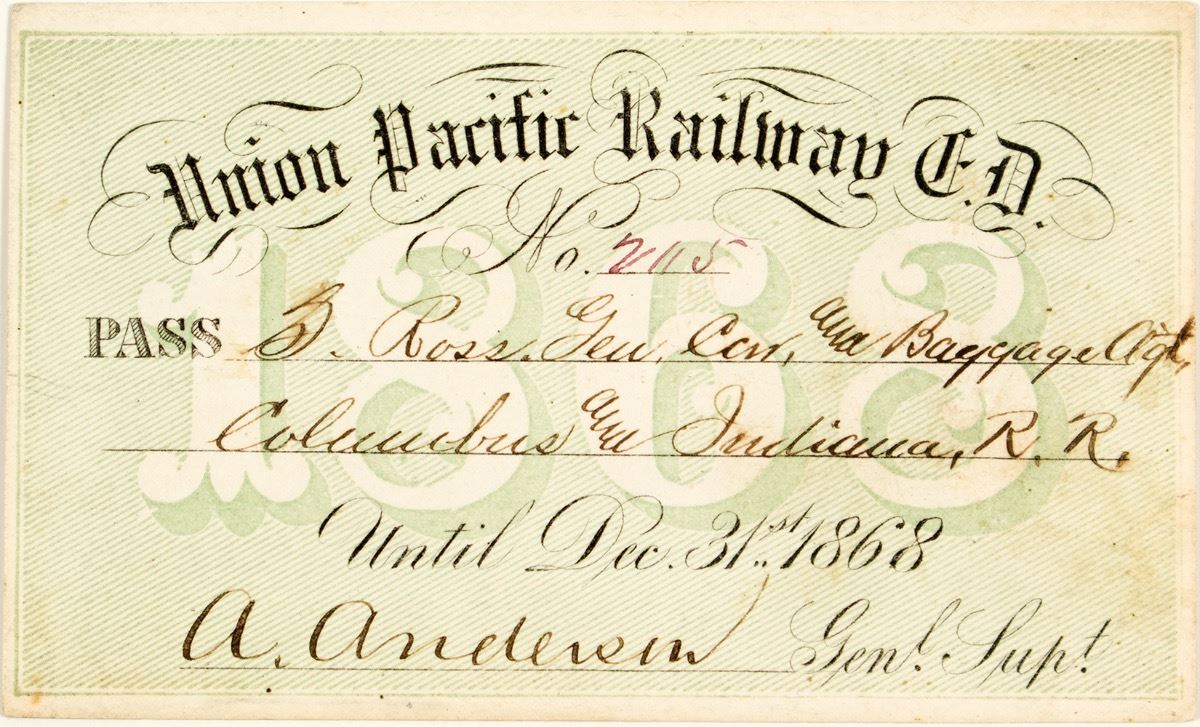 Union Pacific Railway E.D.
No. 2115
PASS B. Ross, Gen, Con, and Baggage Agt,
Columbus and Indiana, R. R.
Until Dec. 31st 1868
A. Anderson Genl. Supt.
1868